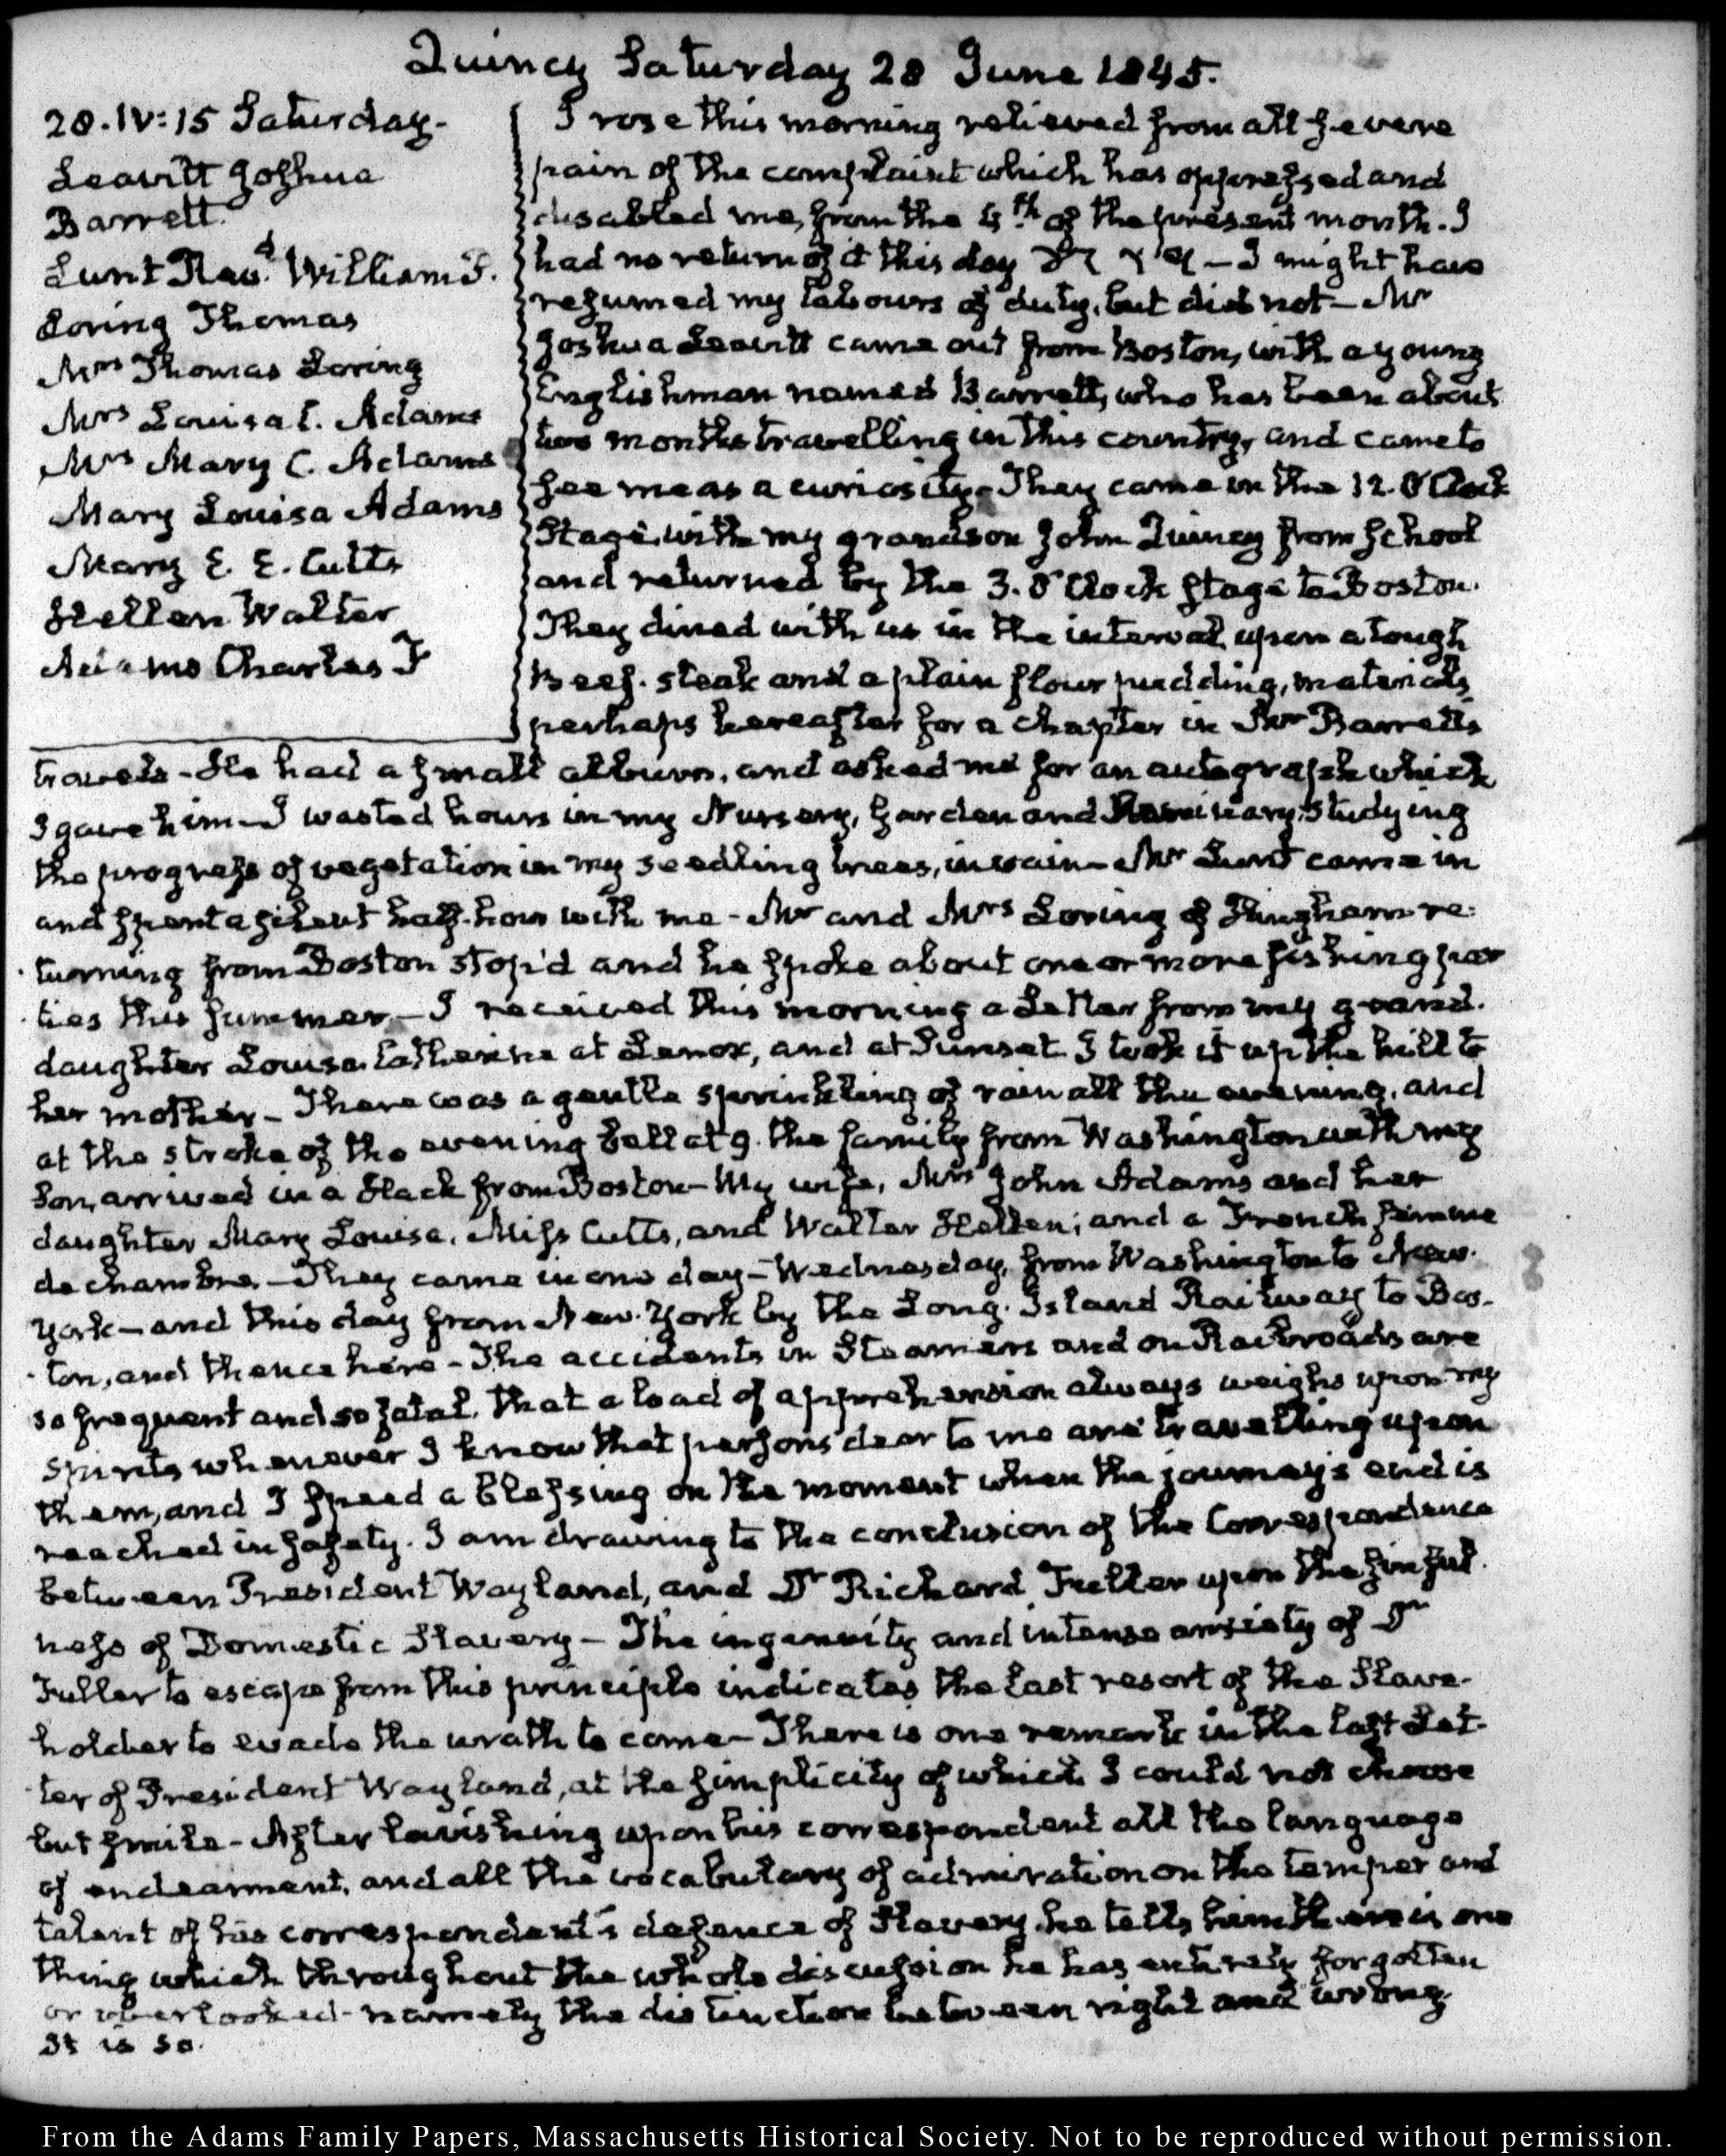 Quincy Saturday 28 June 1845.
28. IV:15 Saturday.
Leavitt Joshua
Barrett.
Lunt Revd. William P.
Loring Thomas
Mrs Thomas Loring
Mrs Louisa C. Adams
Mrs Mary C. Adams
Mary Louisa Adams
Mary E. E. Cutts
Hellen Walter
Adams Charles F
I rose this morning relieved from all severe
pain of the complaint which has oppressed and
disabled me, from the 4th of the present month. I
had no return of it this day — I might have
resumed my labours of duty, but did not — Mr
Joshua Leavitt came out from Boston, with a young
Englishman named Barrett, who has been about
two months travelling in this country, and came to
see me as a curiosity. They came in the 12. O'Clock
Stage, with my grandson John Quincy from School
and returned by the 3. O'Clock stage to Boston.
They dined with us in the interval upon a tough
Beef-steak and a plain flour pudding, materials
perhaps hereafter for a chapter in Mr Barretts
travels - He had a small album, and asked me for an autograph which
I gave him — I wasted hours in my Nursery, Garden and Seminary, Studying
the progress of vegetation in my seedling trees, in vain — Mr Lunt came in
and spent a silent half-hour with me - Mr and Mrs Loring of Hingham re-
turning from Boston stop'd and he spoke about one or more fishing par
ties this summer — I received this morning a Letter from my grand-
daughter Louisa Catherine at Lenox, and at Sunset I took it up the hill to
her mother — There was a gentle sprinkling of rain all the evening, and
at the stroke of the evening bell at 9. the family from Washington with my
Son, arrived in a Hack from Boston — My wife, Mrs John Adams and her
daughter Mary Louisa, Miss Cutts, and Walter Hellen; and a French femme
de chambre — They came in one day — Wednesday, from Washington to New-
York — and this day from New-York by the Long-Island Railway to Bos-
ton, and thence here — The accidents in Steamers and on Railroads are
so frequent and so fatal, that a load of apprehension always weighs upon my
spirits whenever I know that persons dear to me are travelling upon
them, and I speed a blessing on the moment when the journey's end is
reached in safety. I am drawing to the conclusion of the Correspondence
between President Wayland, and Dr Richard Fuller upon the sinful-
ness of Domestic Slavery — The ingenuity and intense anxiety of Dr
Fuller to escape from this principle indicates the last resort of the Slave-
holder to evade the wrath to come — There is one remark in the last Let-
ter of President Wayland, at the simplicity of which I could not choose
but smile — After lavishing upon his correspondent all the language
of endearment, and all the vocabulary of admiration on the temper and
talent of his correspondent's defence of Slavery, he tells him there is one
thing which throughout the whole discussion he has entirely forgotten
or overlooked - namely the distinction between right and wrong
It is so.
From the Adams Family Papers, Massachusetts Historical Society. Not to be reproduced without permission.